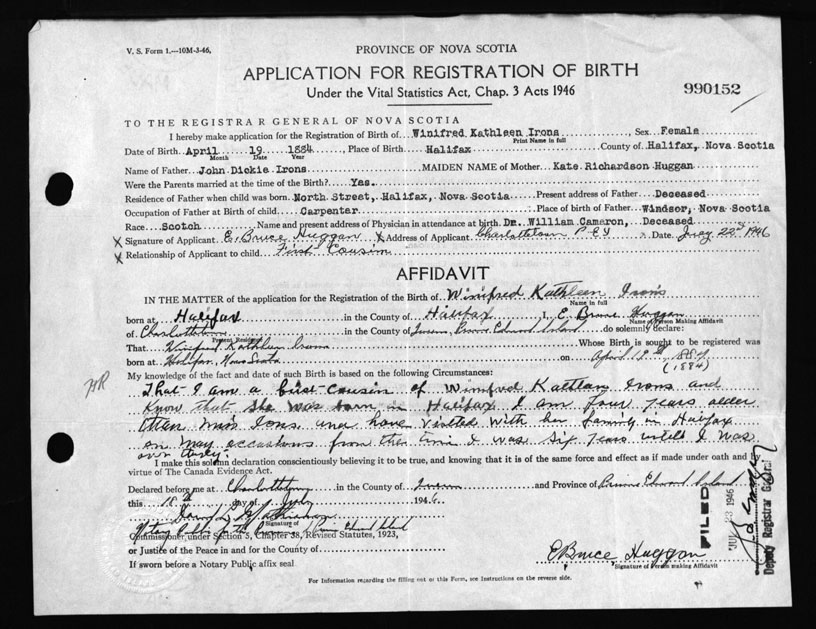 V. S. Form 1.—10M-3-46.
PROVINCE OF NOVA SCOTIA
APPLICATION FOR REGISTRATION OF BIRTH
Under the Vital Statistics Act, Chap. 3 Acts 1946
990152
TO THE REGISTRAR GENERAL OF NOVA SCOTIA
I hereby make application for the Registration of Birth of Winifred Kathleen Irons, Sex Female
Print Name in full
Date of Birth April 19 1884, Place of Birth Halifax County of Halifax, Nova Scotia
Month Date Year
Name of Father John Dickie Irons MAIDEN NAME of Mother Kate Richardson Huggan
Were the Parents married at the time of the Birth? Yes.
Residence of Father when child was born North Street, Halifax, Nova Scotia Present address of Father Deceased
Occupation of Father at Birth of child Carpenter Place of birth of Father Windsor, Nova Scotia
Race Scotch Name and present address of Physician in attendance at birth Dr. William Cameron, Deceased
X Signature of Applicant E. Bruce Huggan X Address of Applicant Charlottetown P E I Date July 22nd 1946
X Relationship of Applicant to child First Cousin
AFFIDAVIT
IN THE MATTER of the application for the Registration of Birth of Winifred Kathleen Irons
Name in full
born at Halifax in the County of Halifax I, E Bruce Huggan
Name of Person Making Affidavit
of Charlottetown in the County of Queens, Prince Edward Island do solemnly declare:
Present Residence
That Winifred Kathleen Irons Whose Birth is sought to be registered was
born at Halifax, Nova Scotia on April 19th 1884
(1884)
My knowledge of the fact and date of such Birth is based on the following Circumstances:
HR
That I am a first cousin of Winifred Kathleen Irons and
know that she was born in Halifax I am four years older
then Miss Irons and have visited with her family in Halifax
on many occasions from the time I was six years untill I was
over thirty.
I make this solemn declaration conscientiously believing it to be true, and knowing that it is of the same force and effect as if made under oath and by
virtue of The Canada Evidence Act.
Declared before me at Charlottetown in the County of Queens and Province of Prince Edward Island
this day of July 1946
Signature of
Commissioner under Section 5, Chapter 38, Revised Statutes, 1923,
or Justice of the Peace in and for the County of
If sworn before a Notary Public affix seal
E Bruce Huggan
Signature of Person making Affidavit
FILED
JUL 23 1946
Deputy Registrar General
For Information regarding the filling out of this Form, see Instructions on the reverse side.